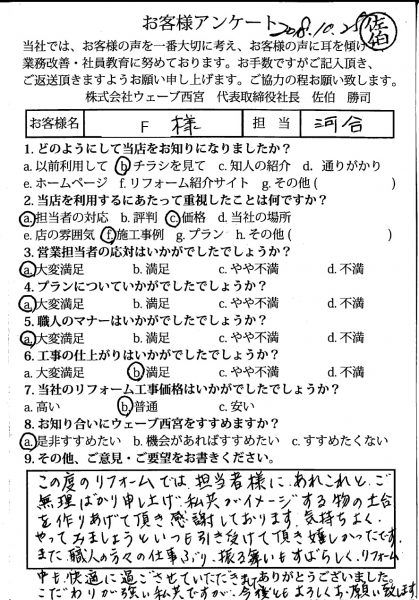 お客様アンケート 2018.10.29 佐伯
当社では、お客様の声を一番大切に考え、お客様の声に耳を傾け
業務改善・社員教育に努めております。お手数ですがご記入頂き、
ご返送頂きますようお願い申し上げます。ご協力の程お願い致します。
株式会社ウェーブ西宮 代表取締役社長 佐伯 勝司
お客様名 F 様 担当 河合
1. どのようにして当店をお知りになりましたか?
a. 以前利用して b. チラシを見て c. 知人の紹介 d. 通りがかり
e. ホームページ f. リフォーム紹介サイト g. その他 ( )
2. 当店を利用するにあたって重視したことは何ですか?
a. 担当者の対応 b. 評判 c. 価格 d. 当社の場所
e. 店の雰囲気 f. 施工事例 g. プラン h. その他 ( )
3. 営業担当者の応対はいかがでしたでしょうか?
a. 大変満足 b. 満足 c. やや不満 d. 不満
4. プランについていかがでしたでしょうか?
a. 大変満足 b. 満足 c. やや不満 d. 不満
5. 職人のマナーはいかがでしたでしょうか?
a. 大変満足 b. 満足 c. やや不満 d. 不満
6. 工事の仕上がりはいかがでしたでしょうか?
a. 大変満足 b. 満足 c. やや不満 d. 不満
7. 当社のリフォーム工事価格はいかがでしたでしょうか?
a. 高い b. 普通 c. 安い
8. お知り合いにウェーブ西宮をすすめますか?
a. 是非すすめたい b. 機会があればすすめたい c. すすめたくない
9. その他、ご意見・ご要望をお書きください。
この度のリフォームでは、担当者様に、あれこれと、ご
無理ばかり申し上げ私共がイメージする物の土台
を作りあげて頂き感謝しております。気持ちよく、
やってみましょうといつも引き受けて頂き嬉しかったです。
また、職人の方々の仕事ぶり、振る舞いもすばらしく、リフォーム
中も快適に過ごさせていただきました。
ありがとうございました。
こだわりが強い私共ですが、今後ともよろしくお願い致します